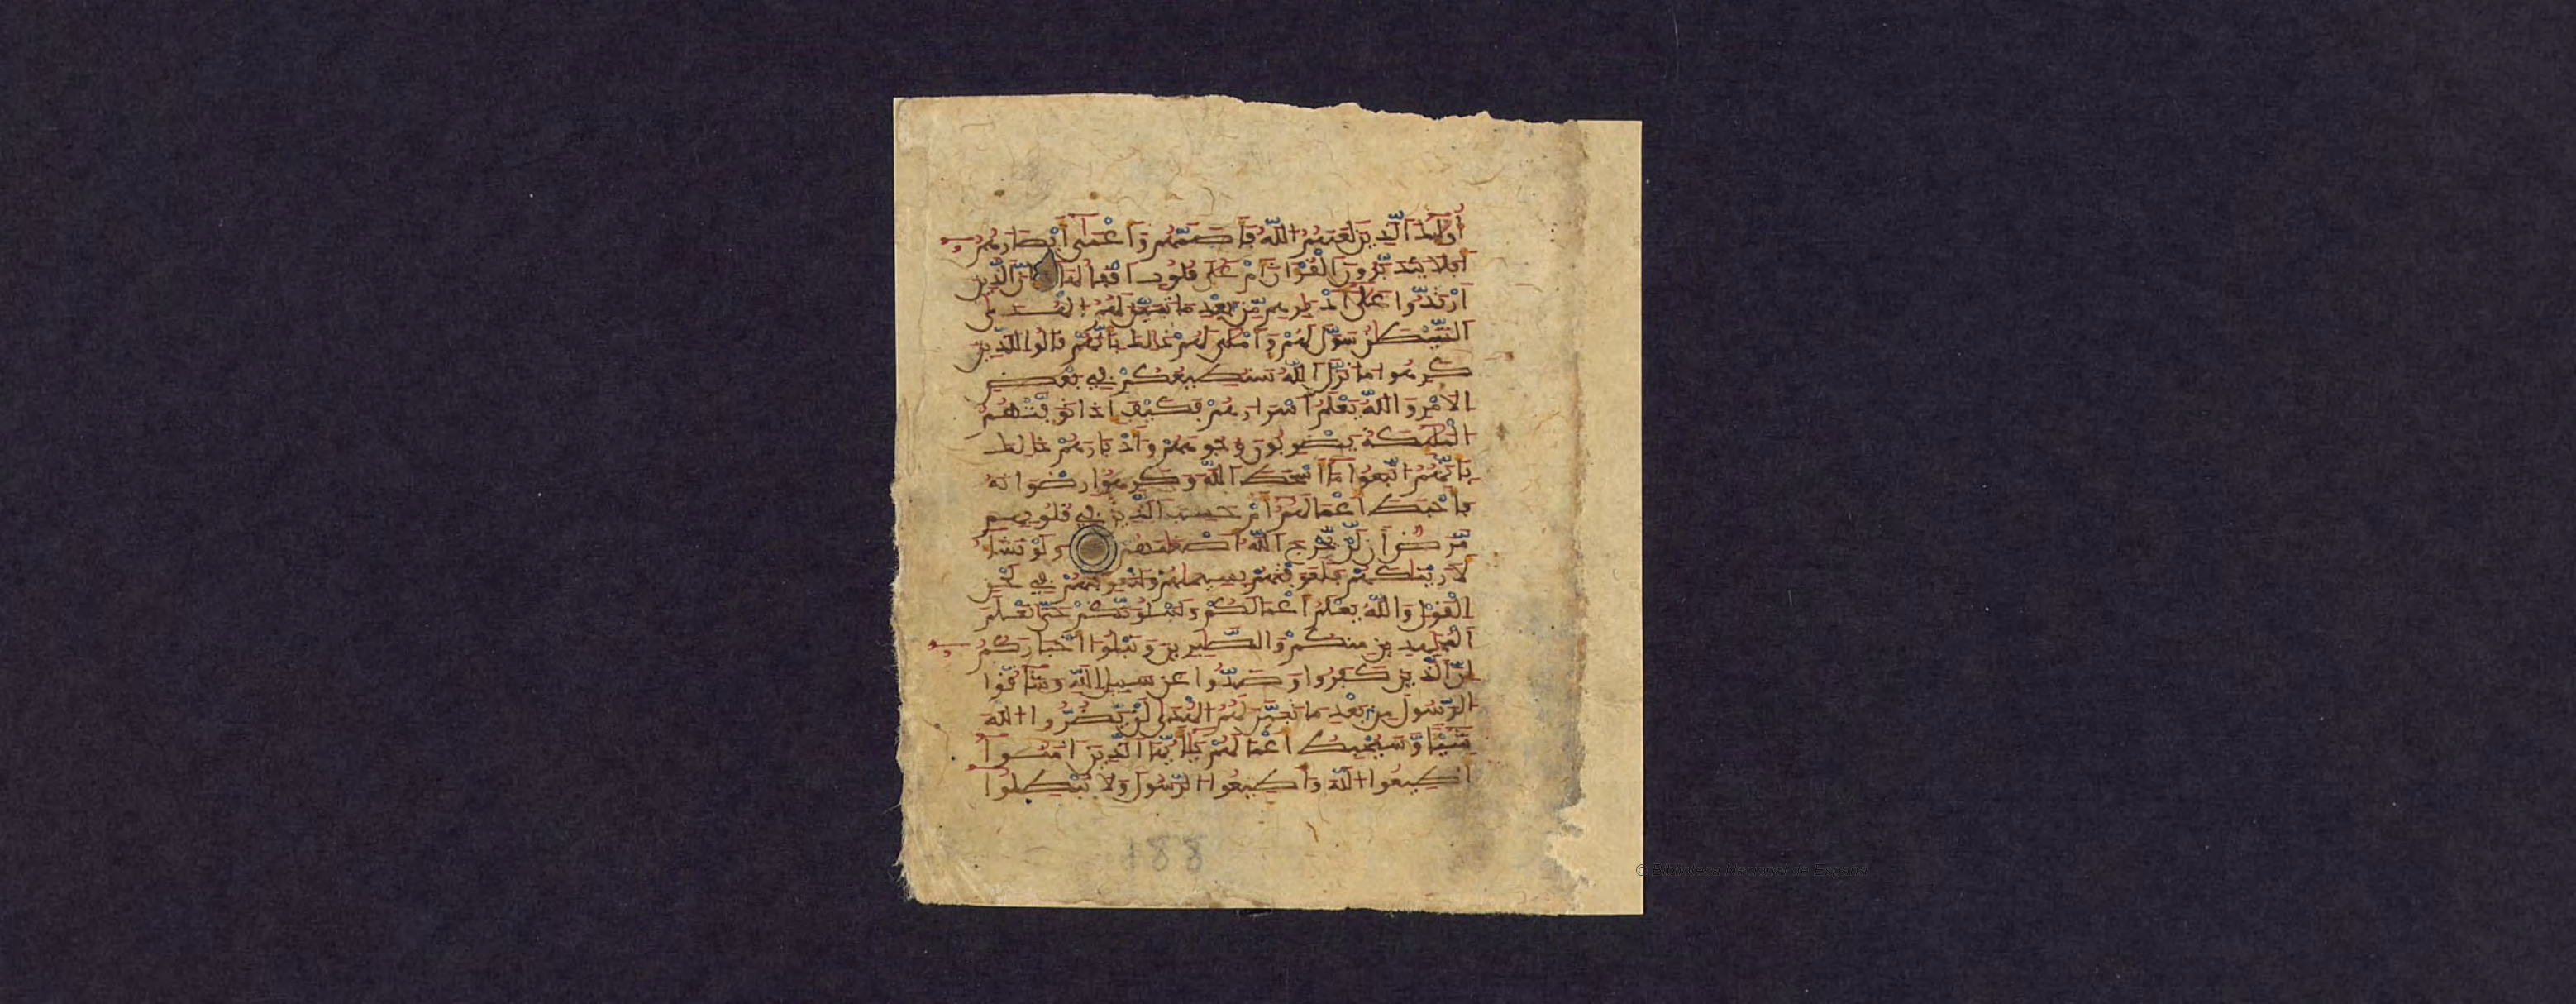 أُوْلَٰئِكَ ٱلَّذِينَ لَعَنَهُمُ ٱللَّهُ فَأَصَمَّهُمْ وَأَعْمَىٰٓ أَبْصَٰرَهُمُۥٓ
أَفَلَا يَتَدَبَّرُونَ ٱلْقُرْءَانَ أَمْ عَلَىٰ قُلُوبٍ أَقْفَالُهَآ إِنَّ ٱلَّذِينَ
ٱرْتَدُّوا۟ عَلَىٰٓ أَدْبَٰرِهِم مِّنۢ بَعْدِ مَا تَبَيَّنَ لَهُمُ ٱلْهُدَى
ٱلشَّيْطَٰنُ سَوَّلَ لَهُمْ وَأَمْلَىٰ لَهُمْ ذَٰلِكَ بِأَنَّهُمْ قَالُوا۟ لِلَّذِينَ
كَرِهُوا۟ مَا نَزَّلَ ٱللَّهُ سَنُطِيعُكُمْ فِى بَعْضِ
ٱلْأَمْرِ وَٱللَّهُ يَعْلَمُ أَسْرَارَهُمْ فَكَيْفَ إِذَا تَوَفَّتْهُمُ
ٱلْمَلَٰٓئِكَةُ يَضْرِبُونَ وُجُوهَهُمْ وَأَدْبَٰرَهُمْ ذَٰلِكَ
بِأَنَّهُمُ ٱتَّبَعُوا۟ مَآ أَسْخَطَ ٱللَّهَ وَكَرِهُوا۟ رِضْوَٰنَهُ
فَأَحْبَطَ أَعْمَٰلَهُمْ أَمْ حَسِبَ ٱلَّذِينَ فِى قُلُوبِهِم
مَّرَضٌ أَن لَّن يُخْرِجَ ٱللَّهُ أَضْغَٰنَهُمْ وَلَوْ نَشَآءُ
لَأَرَيْنَٰكَهُمْ فَلَعَرَفْتَهُم بِسِيمَٰهُمْ وَلَتَعْرِفَنَّهُمْ فِى لَحْنِ
ٱلْقَوْلِ وَٱللَّهُ يَعْلَمُ أَعْمَٰلَكُمْ وَلَنَبْلُوَنَّكُمْ حَتَّىٰ نَعْلَمَ
ٱلْمُجَٰهِدِينَ مِنكُمْ وَٱلصَّٰبِرِينَ وَنَبْلُوَا۟ أَخْبَارَكُمُۥٓ
إِنَّ ٱلَّذِينَ كَفَرُوا۟ وَصَدُّوا۟ عَن سَبِيلِ ٱللَّهِ وَشَآقُّوا۟
ٱلرَّسُولَ مِنۢ بَعْدِ مَا تَبَيَّنَ لَهُمُ ٱلْهُدَىٰ لَن يَضُرُّوا۟ ٱللَّهَ
شَيْـًٔا وَسَيُحْبِطُ أَعْمَٰلَهُمْ يَٰٓأَيُّهَا ٱلَّذِينَ ءَامَنُوٓا۟
أَطِيعُوا۟ ٱللَّهَ وَأَطِيعُوا۟ ٱلرَّسُولَ وَلَا تُبْطِلُوٓا۟
188
© Biblioteca Nacional de España